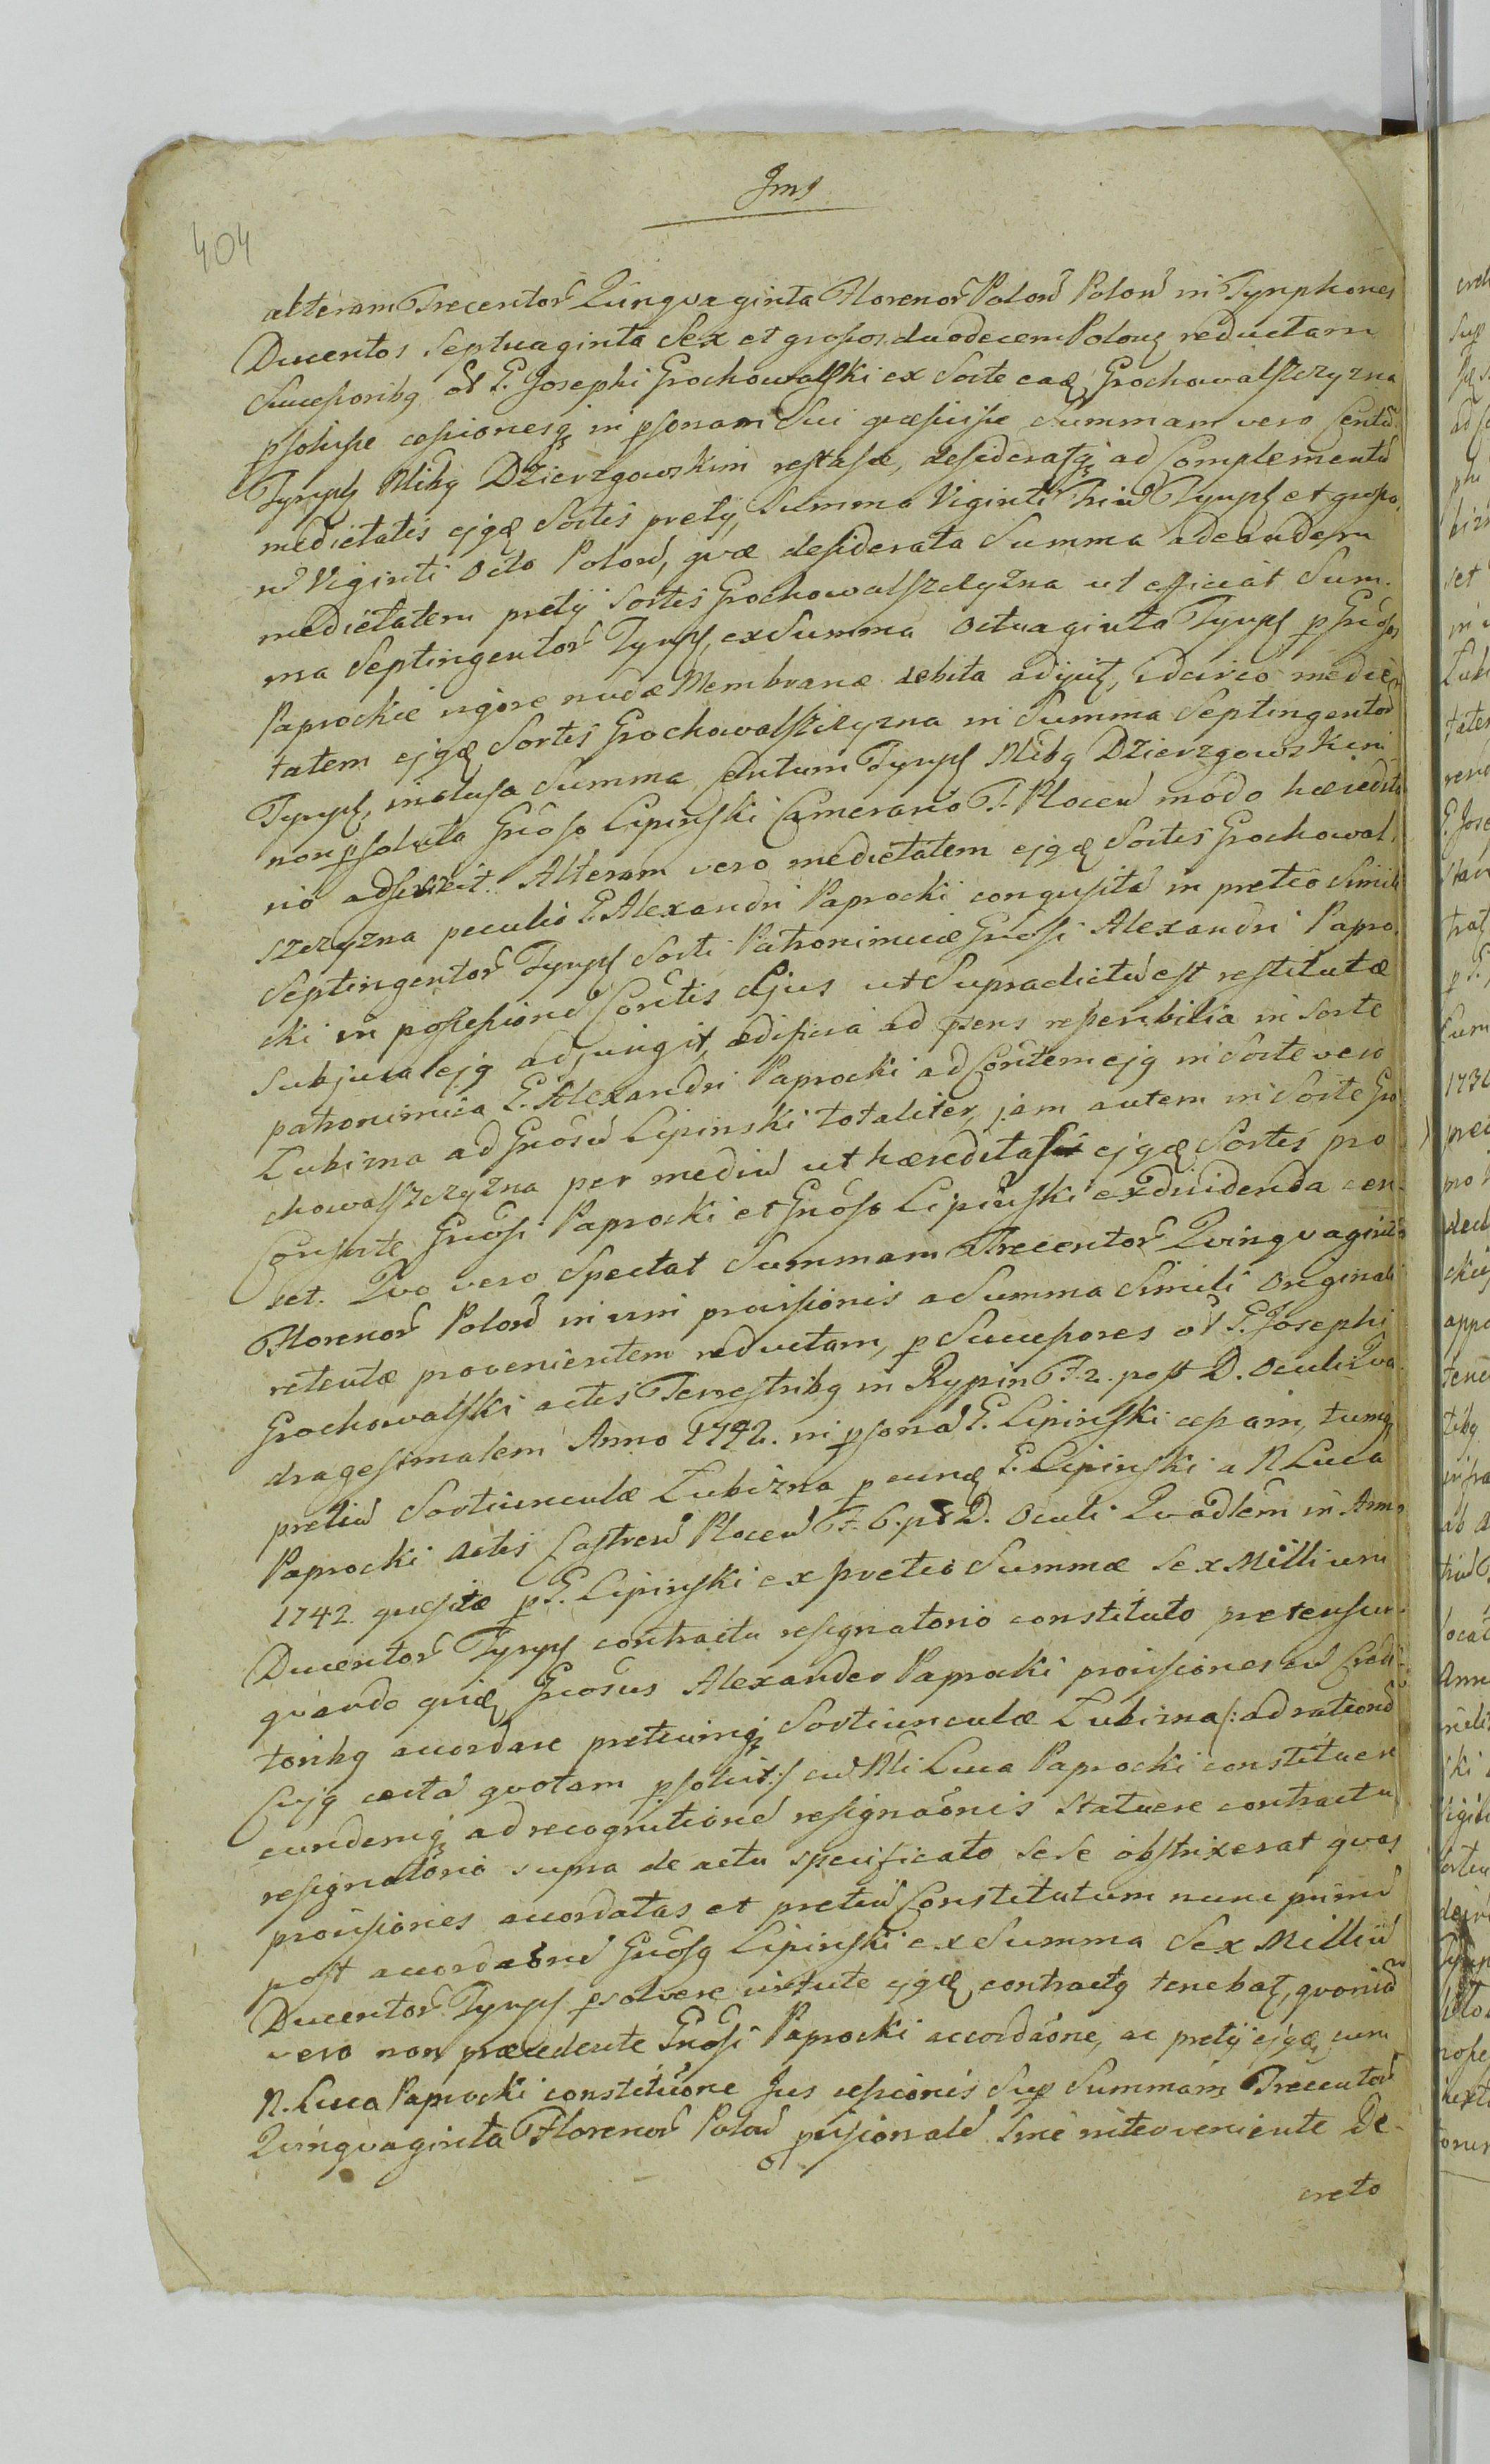 Ims
404
alteram Trecentor Qvinqvaginta Florenor Polon Polon in Tynphones
Ducentos Septuaginta Sex et grossos duodecem Polonq reductam
Successoribq ol G. Josephi Grochowalski ex Sorte eaq Grochowalszczyzna
psolvisse cessionesq in psonam Sui Summam vero Centu
Tynph Nlibq Dzierzgowskim restasse, desideratq ad Complementu
medietatis ejqq Sortis pretij, Summa Viginti Triu Tynph et grosso
ru Viginti Octo Polon, qvæ desiderata Summa ad eandem
medietatem pretij Sortis Grochowalszczyzna ut efficiat Sum-
ma Septingentor Tynph, ex Summa Octuaginta Tynph p Gnosos
Paprockie vigore nudæ Membranæ debita adijcit, idcirco medie
tatem ejqq Sortis Grochowalszczyzna in Summa Septingentor
Tynph, inclusa Summa Centum Tynph Nlibq Dzierzgowskim
non psoluta Gnoso Lipinski Camerario T. Plocen modo hæredita
rio adscribit. Alteram vero medietatem ejqq Sortis Grochowal-
szczyzna peculio G. Alexandri Paprocki conqvisita in pretio Simili
Septingentor Tynph Sorti Patronimicæ Gnosi Alexandri Papro-
cki in possessione Consortis Ejus ut Supradictu est restitutæ
Subjura ejq adjungit, ædificia ad psens reperibilia in Sorte
patronimica G. Alexandri Paprocki ad Consortem ejq in Sorte vero
Lubizna ad Gnosu Lipinski totaliter, jam autem in Sorte Gro
chowalszczyzna per mediu ut hæreditas ejqq Sortis pro
Consorte Gnosi Paprocki et Gnoso Lipinski exdividenda cen-
set. Qvo vero Spectat Summam Trecentor Qvinqvaginta
Florenor Polon in vim provisionis a Summa Simili Originali
retentæ provenientem reductam, p Successores ol G. Josephi
Grochowalski actis Terrestribq in Rypin F. 2. post D. Oculi Qva-
dragesimalem Anno 1742. in psona G. Lipinski cessam, tumq
pretiu Sortiunculæ Lubizna p eunq G. Lipinski a N. Luca
Paprocki Actis Castren Plocen F. 6. pt D. Oculi Qvadlem in Anno
1742. qvæsitæ p G. Lipinski ex pretio Summæ Sex Millium
Ducentor Tynph contractu resignatorio constituto pretensum
qvando qviq Gnosus Alexander Paprocki provisiones cu Credi-
toribq accordare pretiumq Sortiunculæ Lubizna /: ad ratione
Cujq certa qvotam psolvit :/ cu Nli Luca Paprocki constituere
eundemq ad recognitione resignaonis Statuere contractu
resignatorio supra de actu specificato sese obstrixerat qvas
provisiones accordatas et pretiu Constitutum nunc primu
post accordaone Gnosq Lipinski ex Summa Sex Milliu
Ducentor Tynph psolvere virtute ejqq contractq tenebat, qvonia
vero non præcedente Gnosi Paprocki accordaone, ac pretij ejqq cum
N. Luca Paprocki constituone Jus cessionis Sup Summam Trecentor
Qvinqvaginta Florenor Polon pvisionale Sine interveniente De-
creto